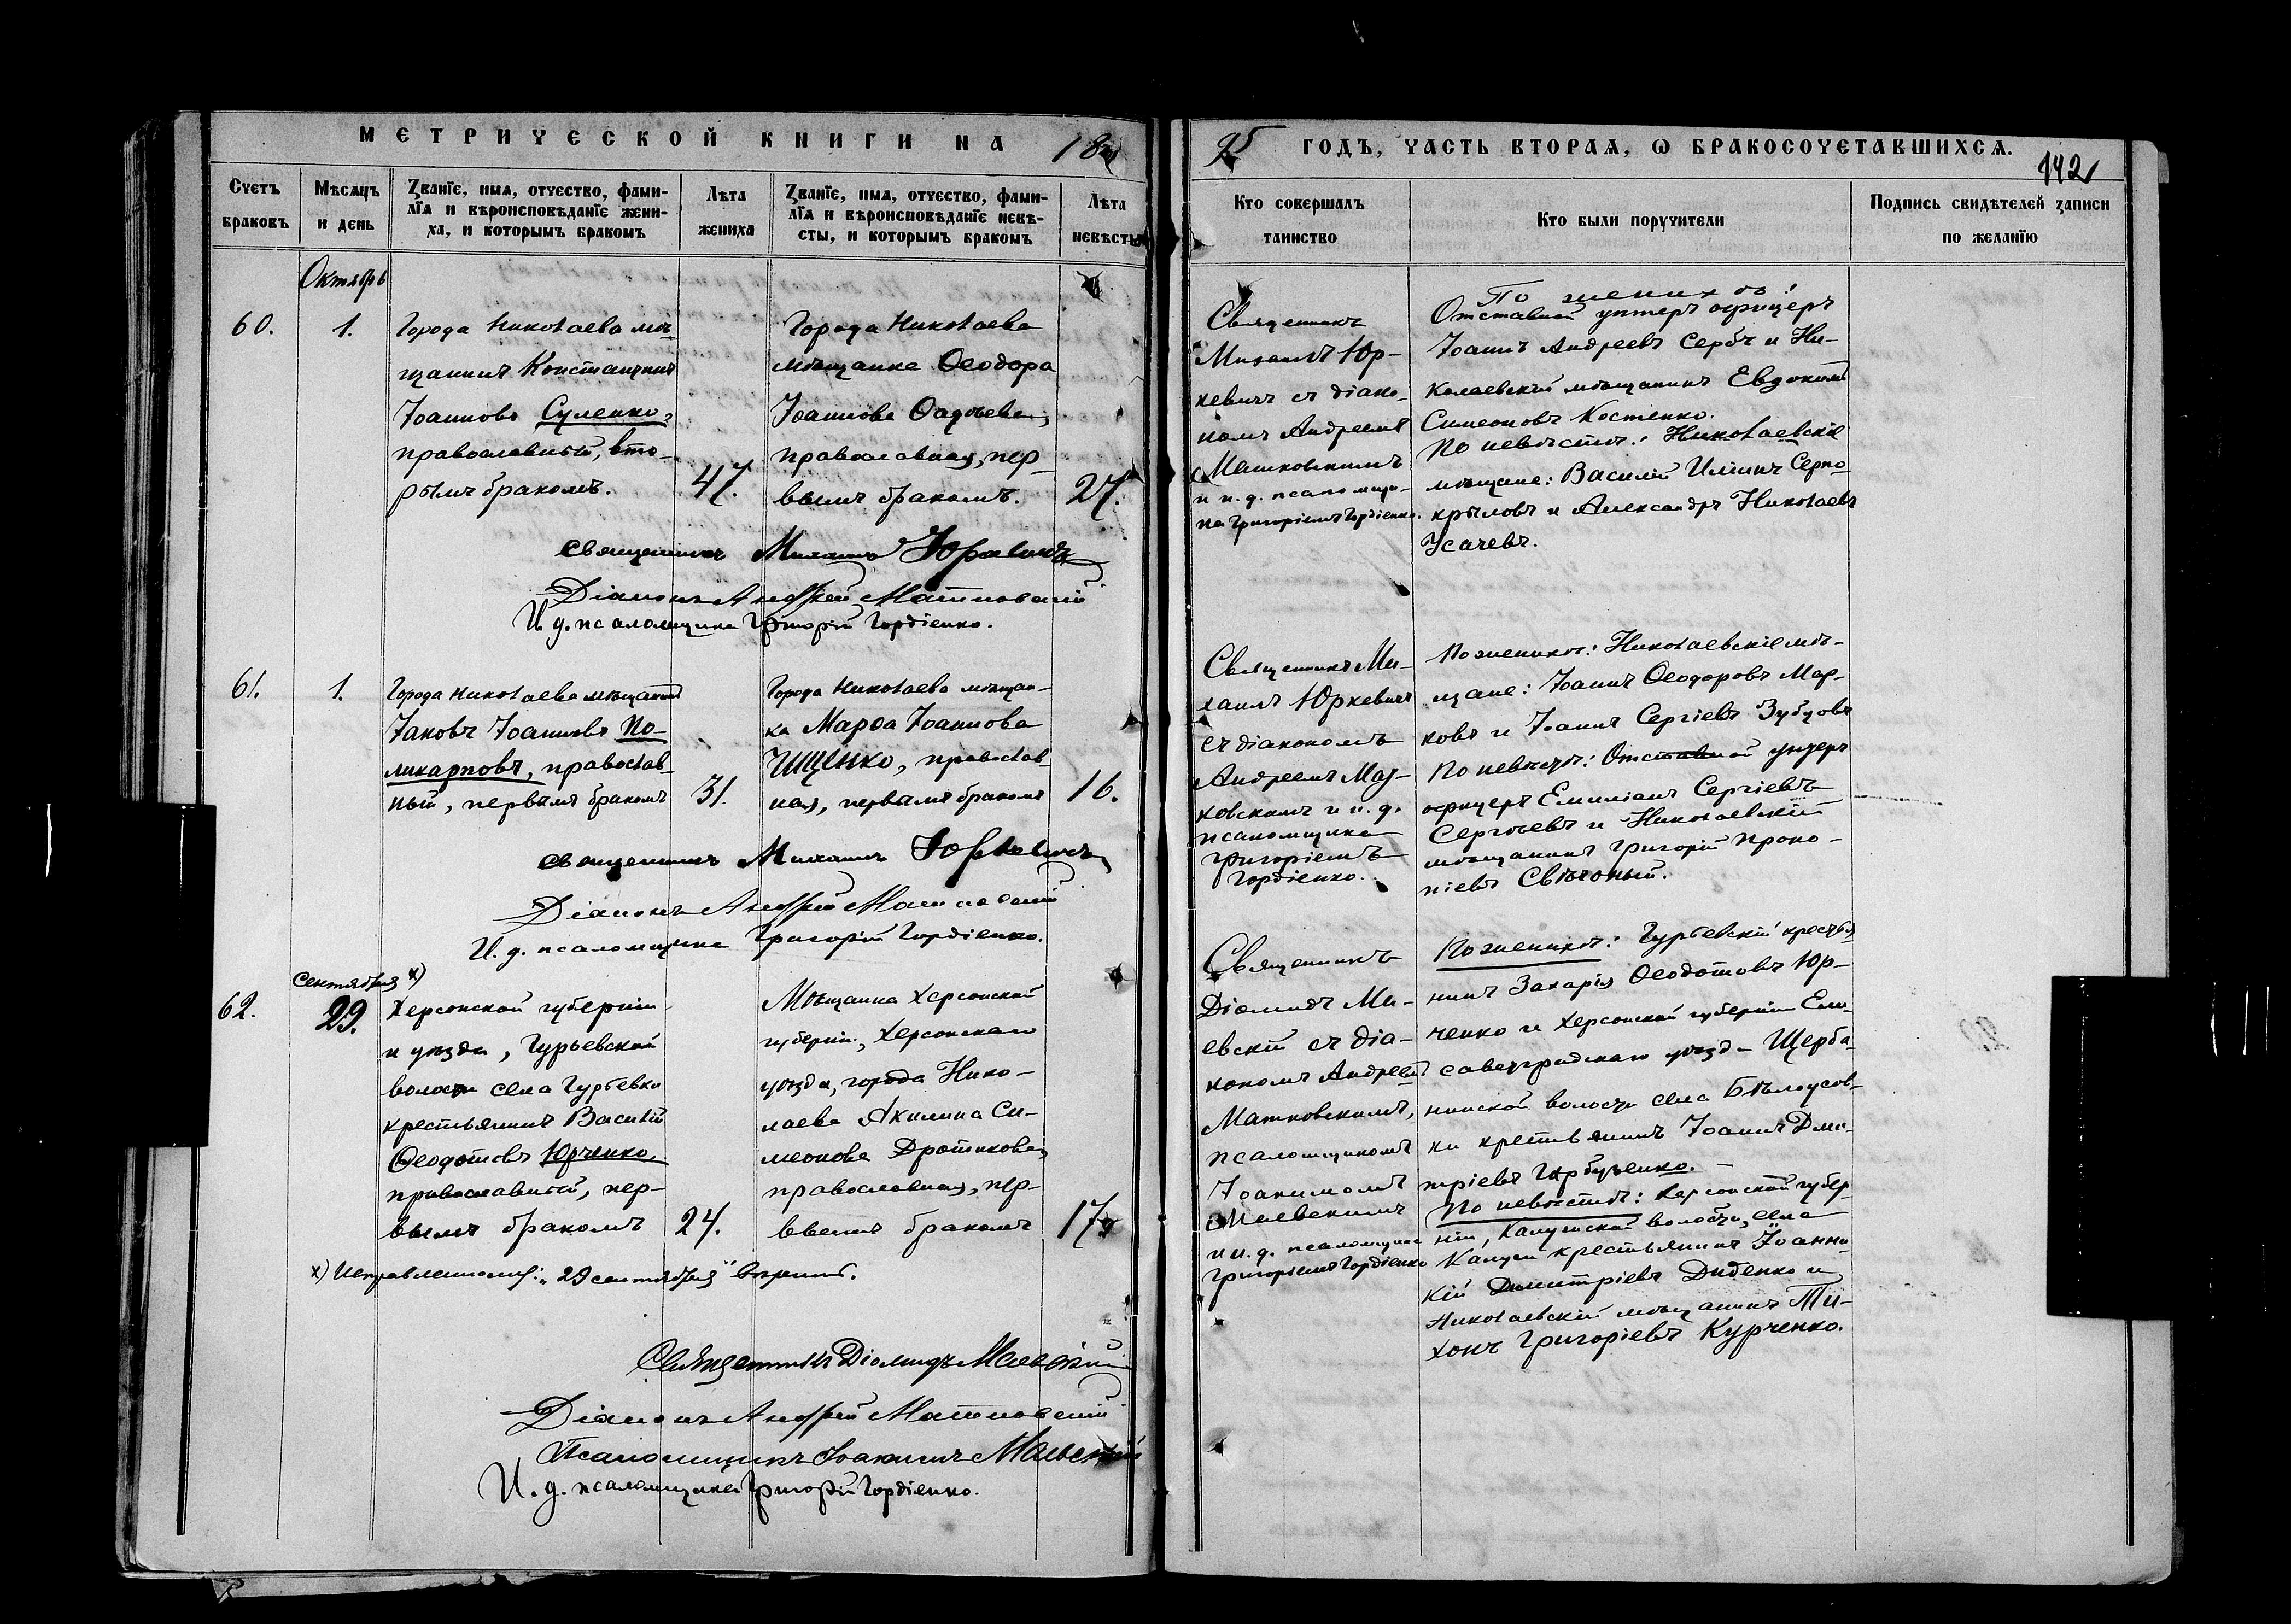 МЕТРИЧЕСКОЙ КНИГИ НА 18
95 ГОДЪ, ЧАСТЬ ВТОРАѦ, Ѡ БРАКОСОЧЕТАВШИХСѦ.
142
Счетъ браковъ
Мѣсяцъ и день
Званїе, имѧ, отчество, фами-
лїѧ и вѣроисповѣданїе жени-
ха, и которымъ бракомъ
Лѣта жениха
Званїе, имѧ, отчество, фами-
лїѧ и вѣроисповѣданїе невѣ-
сты, и которымъ бракомъ
Лѣта невѣсты
Кто совершалъ таинство
Кто были поручители
Подпись свидѣтелей записи по желанїю
Октябрь
60.
1.
Города Николаева мѣ-
щанинъ Константинъ
Іоанновъ Суленко,
православный, вто-
рымъ бракомъ.
47.
Города Николаева
мѣщанка Ѳеодора
Іоаннова Ѳадѣева,
православная, пер-
вымъ бракомъ.
27.
Священникъ
Михаилъ Юр-
кевичъ съ діако-
номъ Андреемъ
Матковскимъ
и и. д. псаломщи-
ка Григоріемъ Гордіенко.
По женихѣ:
Отставной унтеръ офицеръ
Іоаннъ Андреевъ Сербъ и Ни-
колаевскій мѣщанинъ Евдокимъ
Симеоновъ Костенко.
По невѣстѣ: Николаевскіе
мѣщане: Василій Иліинъ Серпо-
крыловъ и Александръ Николаевъ
Усачевъ.
Священникъ Михаилъ Юркевичъ
Діаконъ Андрей Матковскій
И. д. псаломщика Григорій Гордіенко.
61.
1.
Города Николаева мѣщанинъ
Іаковъ Іоанновъ По-
ликарповъ, православ-
ный, первымъ бракомъ
31.
Города Николаева мѣщан-
ка Марѳа Іоаннова
Ищенко, православ-
ная, первымъ бракомъ
16.
Священникъ Ми-
хаилъ Юркевичъ
съ діакономъ
Андреемъ Мат-
ковскимъ и и. д.
псаломщика
Григоріемъ
Гордіенко.
По женихѣ: Николаевскіе мѣ-
щане: Іоаннъ Ѳеодоровъ Мар-
ковъ и Іоаннъ Сергіевъ Зубцовъ
По невѣстѣ: Отставной унтеръ
офицеръ Емиліанъ Сергіевъ
Сергѣевъ и Николаевскій
мѣщанинъ Григорій Проко-
піевъ Свѣчоный.
Священникъ Михаилъ Юркевичъ
Діаконъ Андрей Матковскій
И. д. псаломщика Григорій Гордіенко.
Сентября х)
62.
29.
Херсонской губерніи
и уѣзда, Гурьевской
волости села Гурьевки
крестьянинъ Василій
Ѳеодотовъ Юрченко,
православный, пер-
вымъ бракомъ
24.
Мѣщанка Херсонской
губерніи, Херсонскаго
уѣзда, города Нико-
лаева Акилина Си-
меонова Дротикова,
православная, пер-
ввымъ бракомъ
17
Священникъ
Діомидъ Ма-
евскій съ діа-
кономъ Андреемъ
Матковскимъ,
псаломщикомъ
Іоакимомъ
Маевскимъ
и и. д. псаломщика
Григоріемъ Гордіенко
По женихѣ: Гурьевскій крестья-
нинъ Захарія Ѳеодотовъ Юр-
ченко и Херсонской губерніи Ели-
саветградскаго уѣзда Щерба-
нинской волости села Бѣлоусов-
ки крестьянинъ Іоаннъ Дми-
тріевъ Гарбузенко.
По невѣстѣ: Херсонской губер-
ніи, Калужской волости, села
Калуги крестьянинъ Іоанни-
кій Димитріевъ Диденко и
Николаевскій мѣщанинъ Ти-
хонъ Григоріевъ Курченко.
х) Исправленному: "29 сентября" вѣрить.
Священникъ Діомидъ Маевскій
Діаконъ Андрей Матковскій
Псаломщикъ Іоакимъ Маевскій
И. д. псаломщика Григорій Гордіенко.